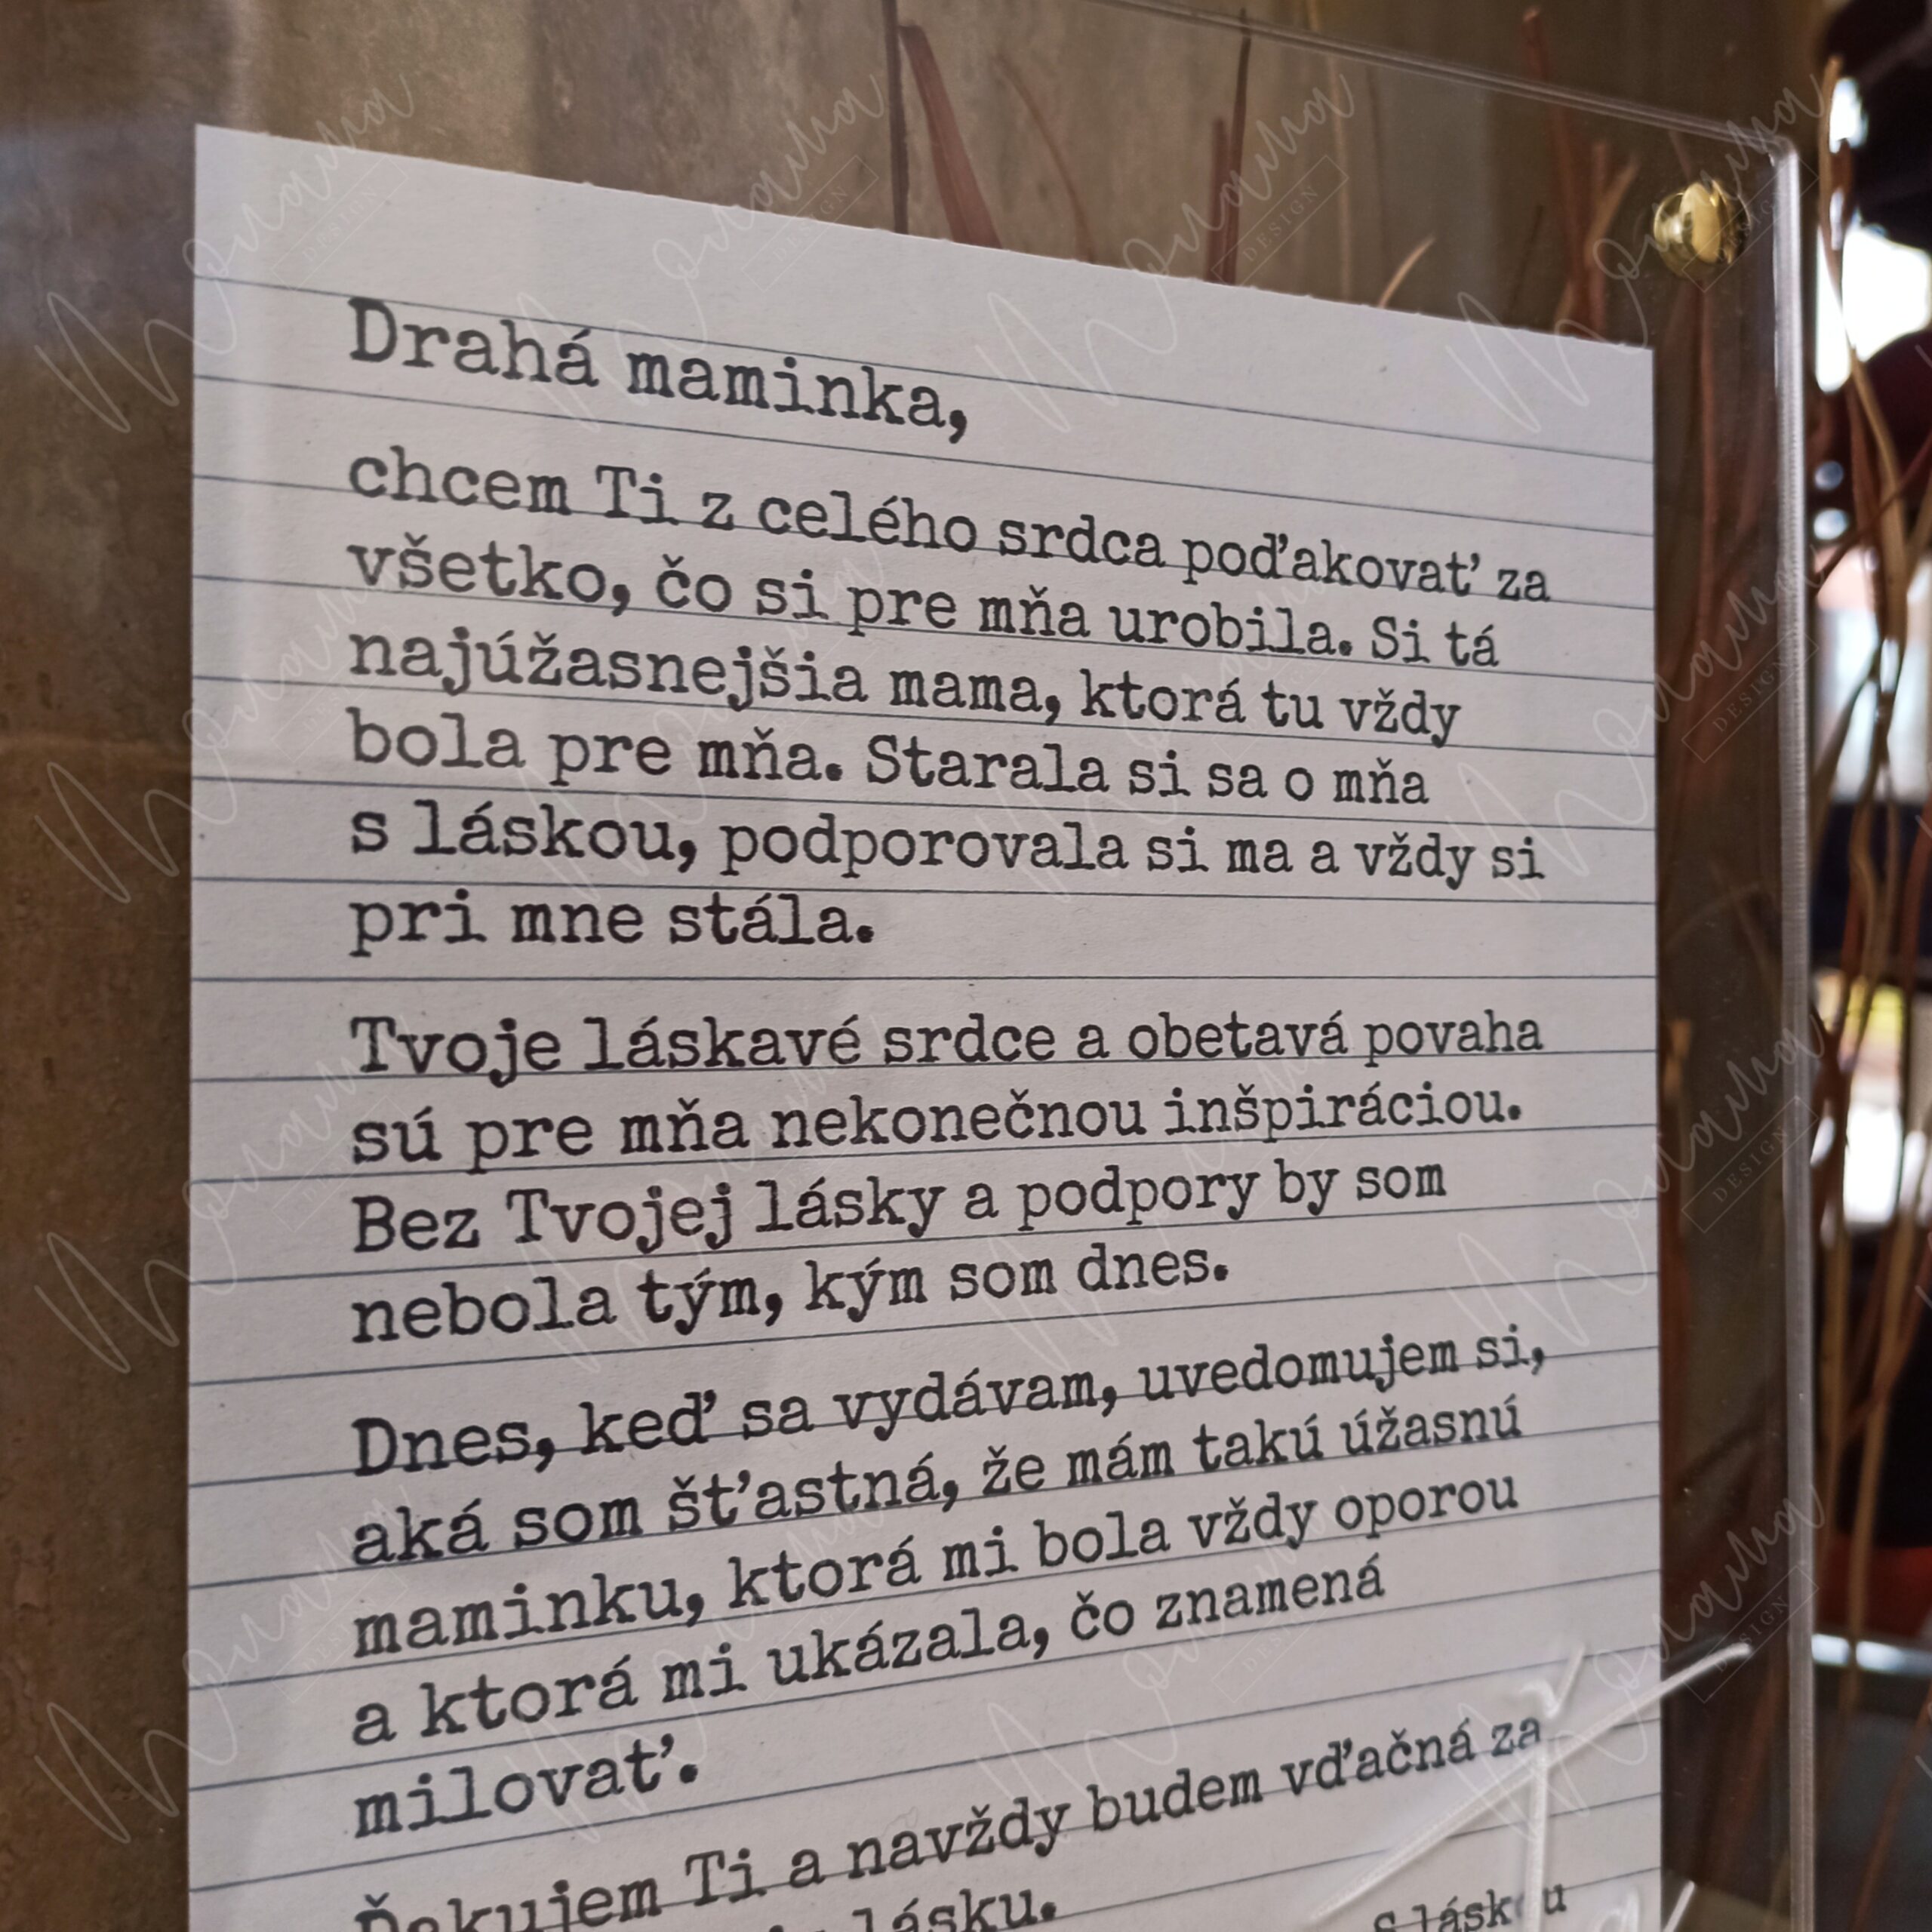 Drahá maminka,
chcem Ti z celého srdca poďakovať za
všetko, čo si pre mňa urobila. Si tá
najúžasnejšia mama, ktorá tu vždy
bola pre mňa. Starala si sa o mňa
s láskou, podporovala si ma a vždy si
pri mne stála.
Tvoje láskavé srdce a obetavá povaha
sú pre mňa nekonečnou inšpiráciou.
Bez Tvojej lásky a podpory by som
nebola tým, kým som dnes.
Dnes, keď sa vydávam, uvedomujem si,
aká som šťastná, že mám takú úžasnú
maminku, ktorá mi bola vždy oporou
a ktorá mi ukázala, čo znamená
milovať.
Ďakujem Ti a navždy budem vďačná za
lásku.
S láskou
DESIGN